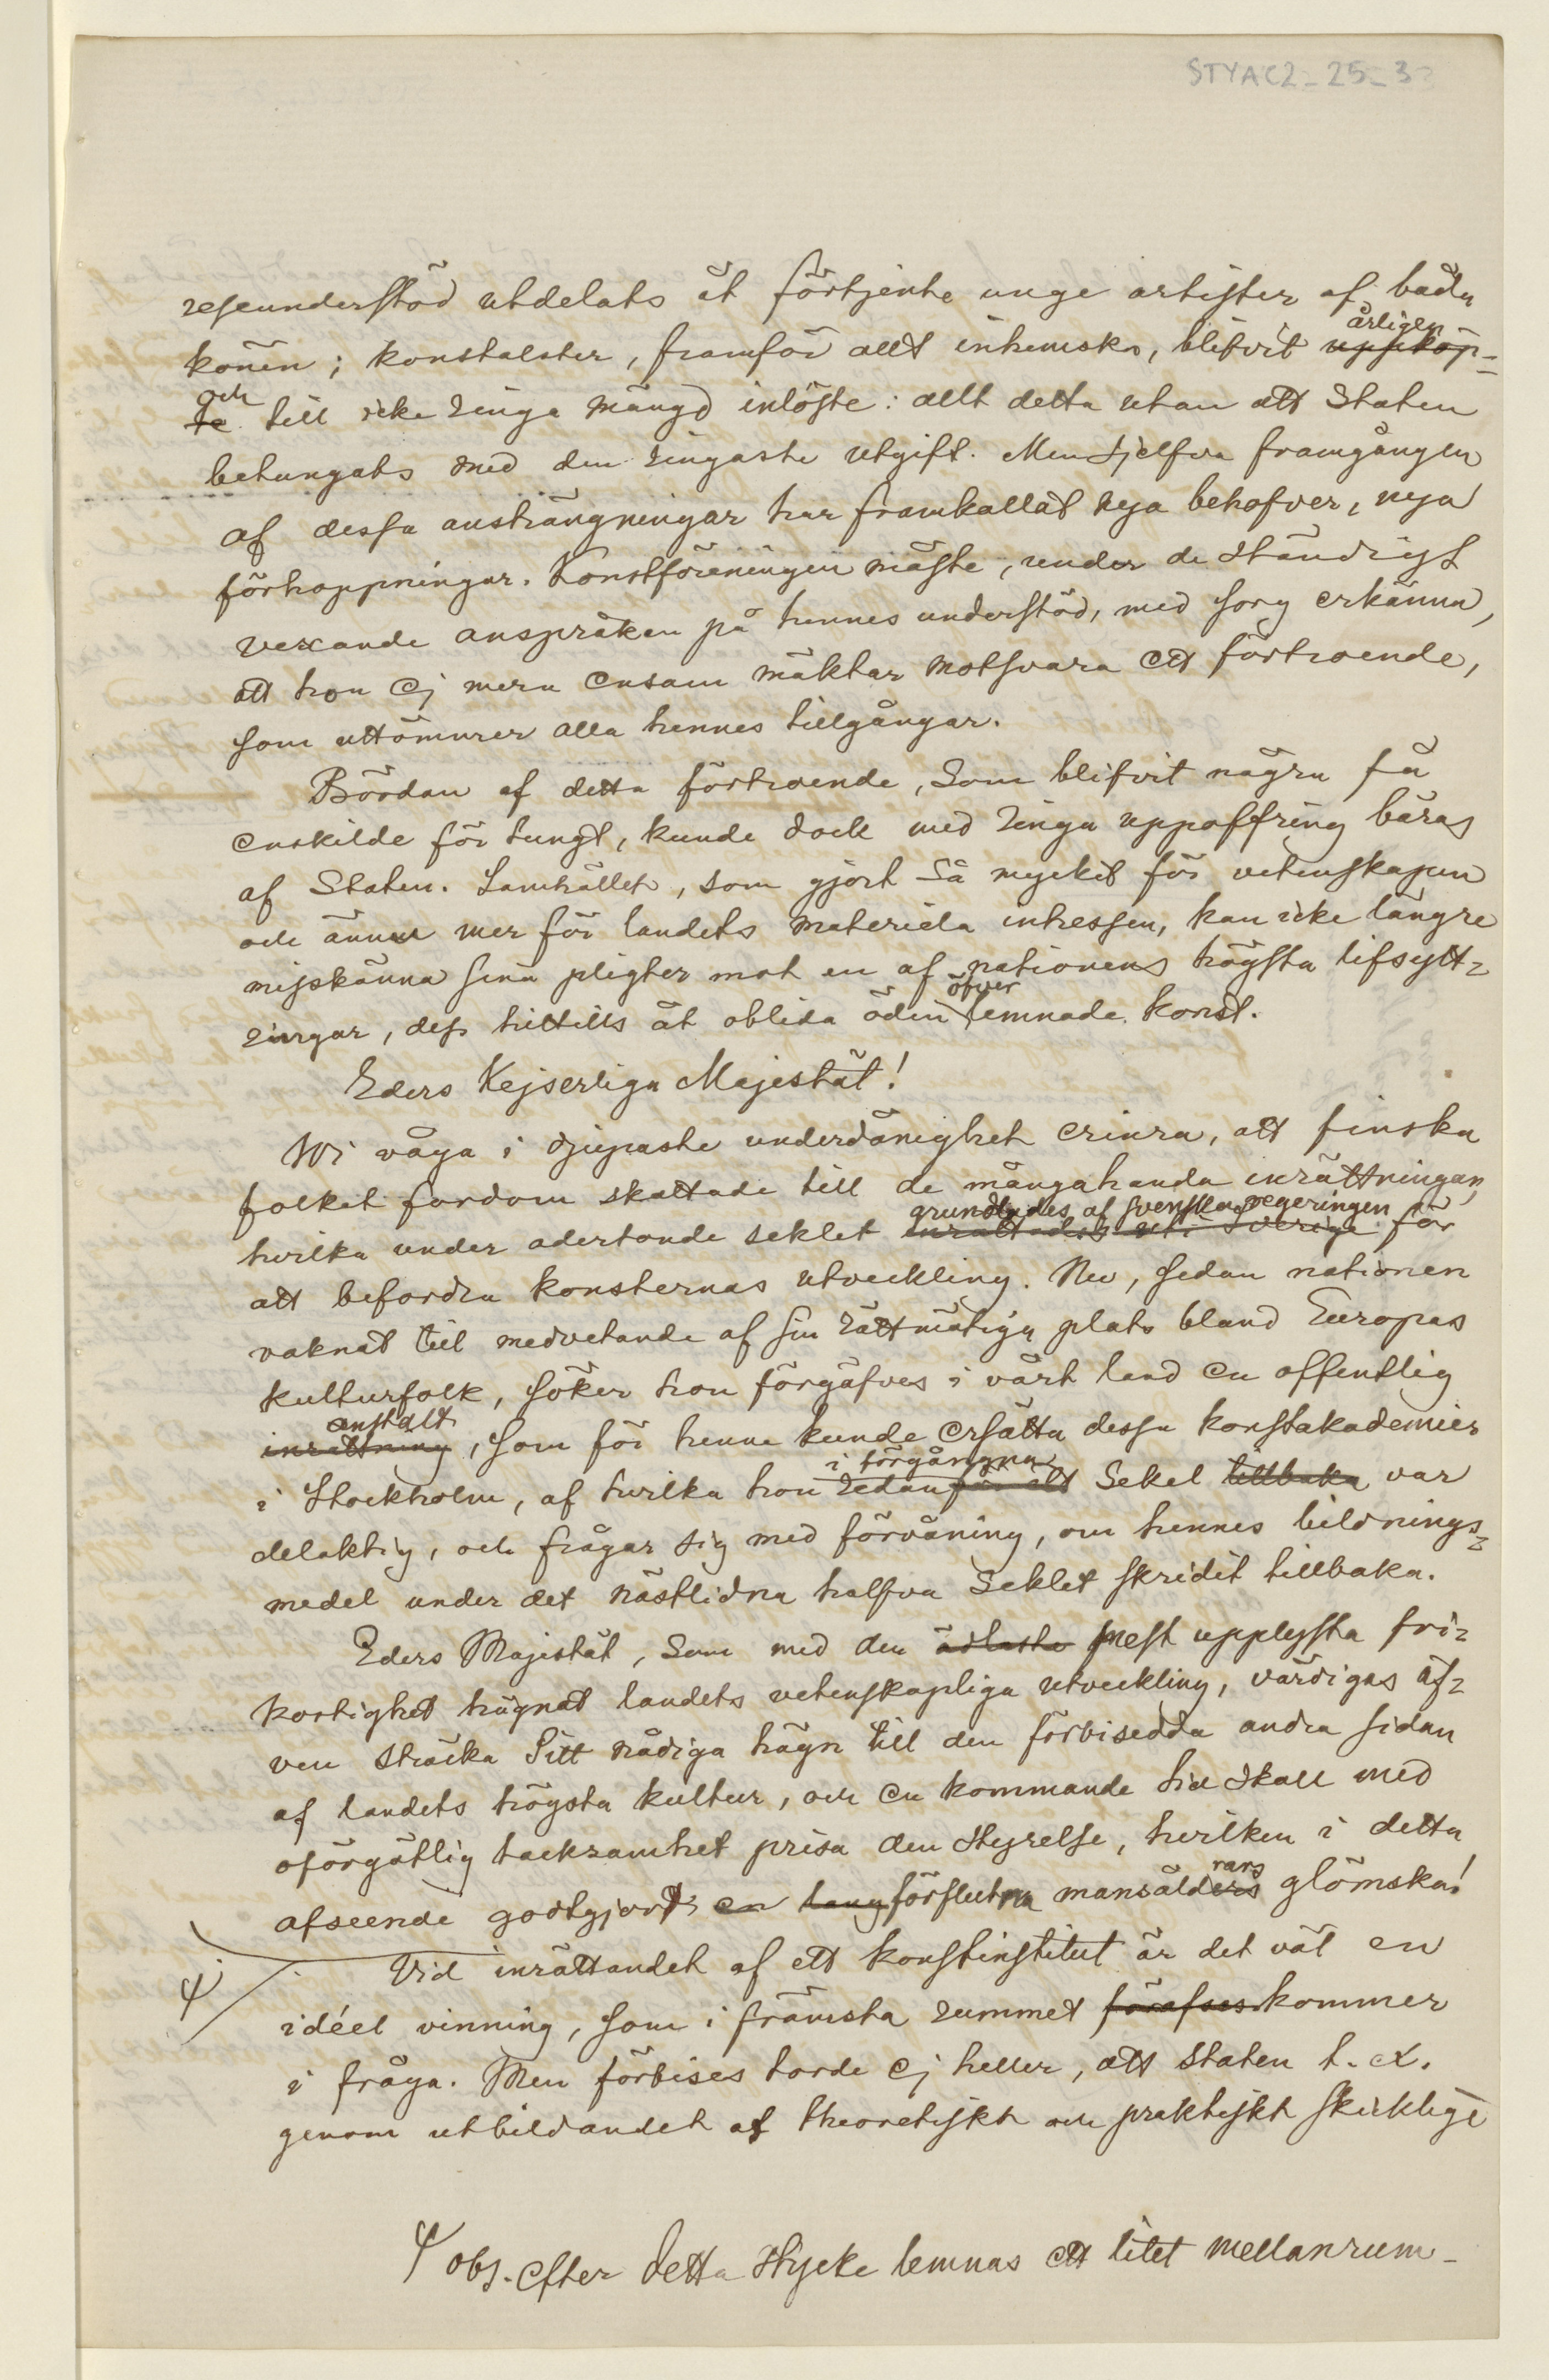 STYAC2_25_33
reseunderstöd utdelats åt förtjente unge artister af båda
årligen
könen; konstalster, framför allt inhemska, blifvit uppköp-
och
te till icke ringa mängd inlöste: allt detta utan att Staten
betungats med den ringaste utgift. Men sjelfva framgången
af dessa ansträngningar har framkallat nya behofver, nya
förhoppningar. Konstföreningen måste, under de ständigt
vexande anspråken på hennes understöd, med sorg erkänna,
att hon ej mera ensam mäktar motsvara ett förtroende,
som uttömmer alla hennes tillgångar.
Bördan af detta förtroende, som blifvit några få
enskilde för tungt, kunde dock med ringa uppoffring bäras
af Staten. Samhället, som gjort så mycket för vetenskapen
och ännu mer för landets materiela intressen, kan icke längre
misskänna sina pligter mot en af nationens högsta lifsytt-
öfver
ringar, dess hittills åt oblida öden lemnade konst.
Eders Kejserliga Majestät!
Wi våga i djupaste underdånighet erinra, att finska
folket fordom skattade till de mångahanda inrättningar,
grundlades af svenska regeringen
hvilka under adertonde seklet inrättades uti Sverige för
att befordra konsternas utveckling. Nu, sedan nationen
vaknat till medvetande af sin rättmätiga plats bland Europas
kulturfolk, söker hon förgäfves i vårt land en offentlig
anstalt
inrättning, som för henne kunde ersätta dessa konstakademier
i förgångna
i Stockholm, af hvilka hon redan för ett sekel tillbaka var
delaktig, och frågar sig med förvåning, om hennes bildnings-
medel under det nästlidna halfva seklet skridit tillbaka.
Eders Majestät, som med den ädlaste mest upplysta fri-
kostighet hägnat landets vetenskapliga utveckling, värdigas äf-
ven sträcka Sitt nådiga hägn till den förbisedda andra sidan
af landets högsta kultur, och en kommande tid skall med
oförgätlig tacksamhet prisa den styrelse, hvilken i detta
rars
afseende godtgjort en lång förflutna mansålders glömska!
Vid inrättandet af ett konstinstitut är det väl en
idéel vinning, som i främsta rummet förafses kommer
i fråga. Men förbises torde ej heller, att staten t. ex.
genom utbildandet af theoretiskt och praktiskt skicklige
obs. efter detta stycke lemnas ett litet mellanrum_